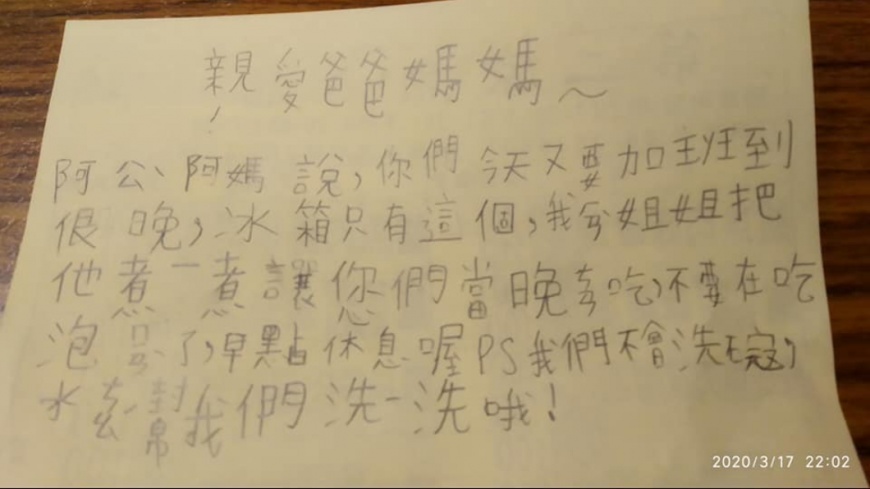 親愛爸爸媽媽~
阿公、阿媽說，你們今天又要加班到
佷晚，冰箱只有這個，我姐姐把
他煮一煮讓您們當晚吃，不要在吃
泡了，早點休息喔PS我們不會洗碗，
水幫我們洗一洗哦！
2020/3/17 22:02